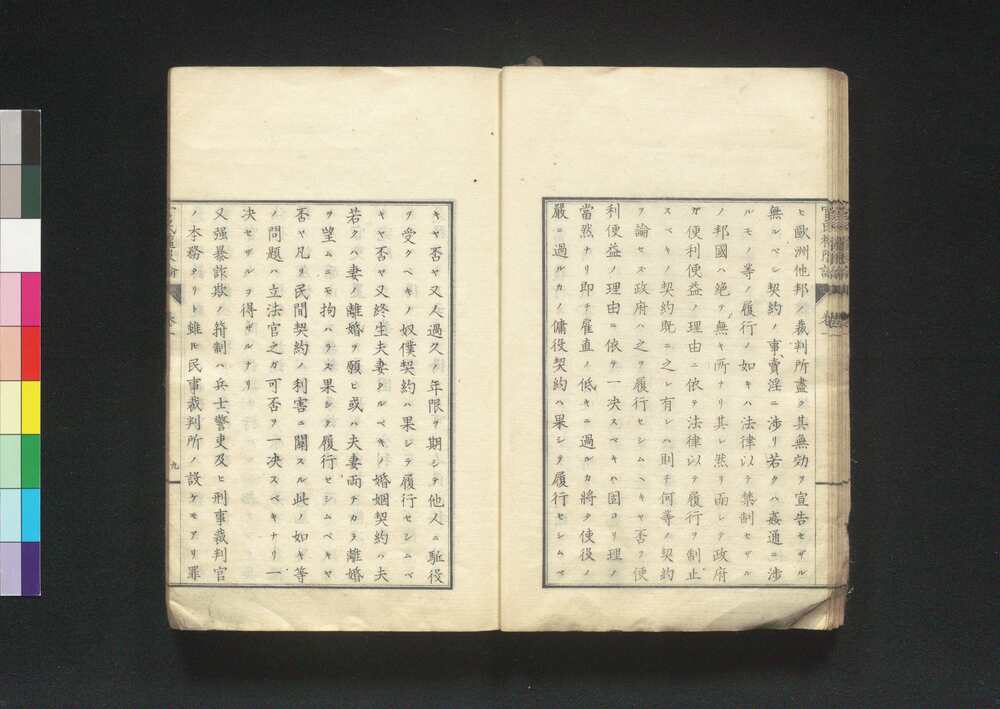 ヒ歐洲他邦ノ裁判所盡ク其無効ヲ宣告セザル
無ルベシ契約ノ事、賣淫ニ涉リ若クハ姦通ニ涉
ルモノ等ノ履行ノ如キハ法律以テ禁制セザル
ノ邦國ハ絶ヲ無キ所ナリ其レ然リ而シテ政府
ガ便利便益ノ理由ニ依テ法律以テ履行ヲ制止
スベキノ契約既ニ之レ有レハ則チ何等ノ契約
ヲ論セス政府ハ之ヲ履行セシムヘキヤ否ヲ便
利便益ノ理由ニ依ヲ一决スベキハ固ヨリ理ノ
當然ナリ即チ雇直ノ低キニ過ルカ將タ使役ノ
嚴ニ過ルカノ傭役契約ハ果シテ履行セシムベ
キヤ否ヤ又人過久ノ年限ヲ期シテ他人ニ駈役
ヲ受クベキノ奴僕契約ハ果シテ履行セシムベ
キヤ否ヤ又終生夫妻タルベキノ婚姻契約ハ夫
若クハ妻ノ離婚ヲ願ヒ或ハ夫妻両ナカラ離婚
ヲ望ムニモ拘ハラス果シテ履行セシムベキヤ
否ヤ凡リ民間契約ノ利害ニ關スル此ノ如キ等
ノ問題ハ立法官之ガ可否ヲ一决スベキナリ一
决セザルヲ得ザルナリ
又强暴詐欺ノ箝制ハ兵士、警吏及ヒ刑事裁判官
ノ本務タリト雖ヒ民事裁判所ノ設ケモアリ罪
九